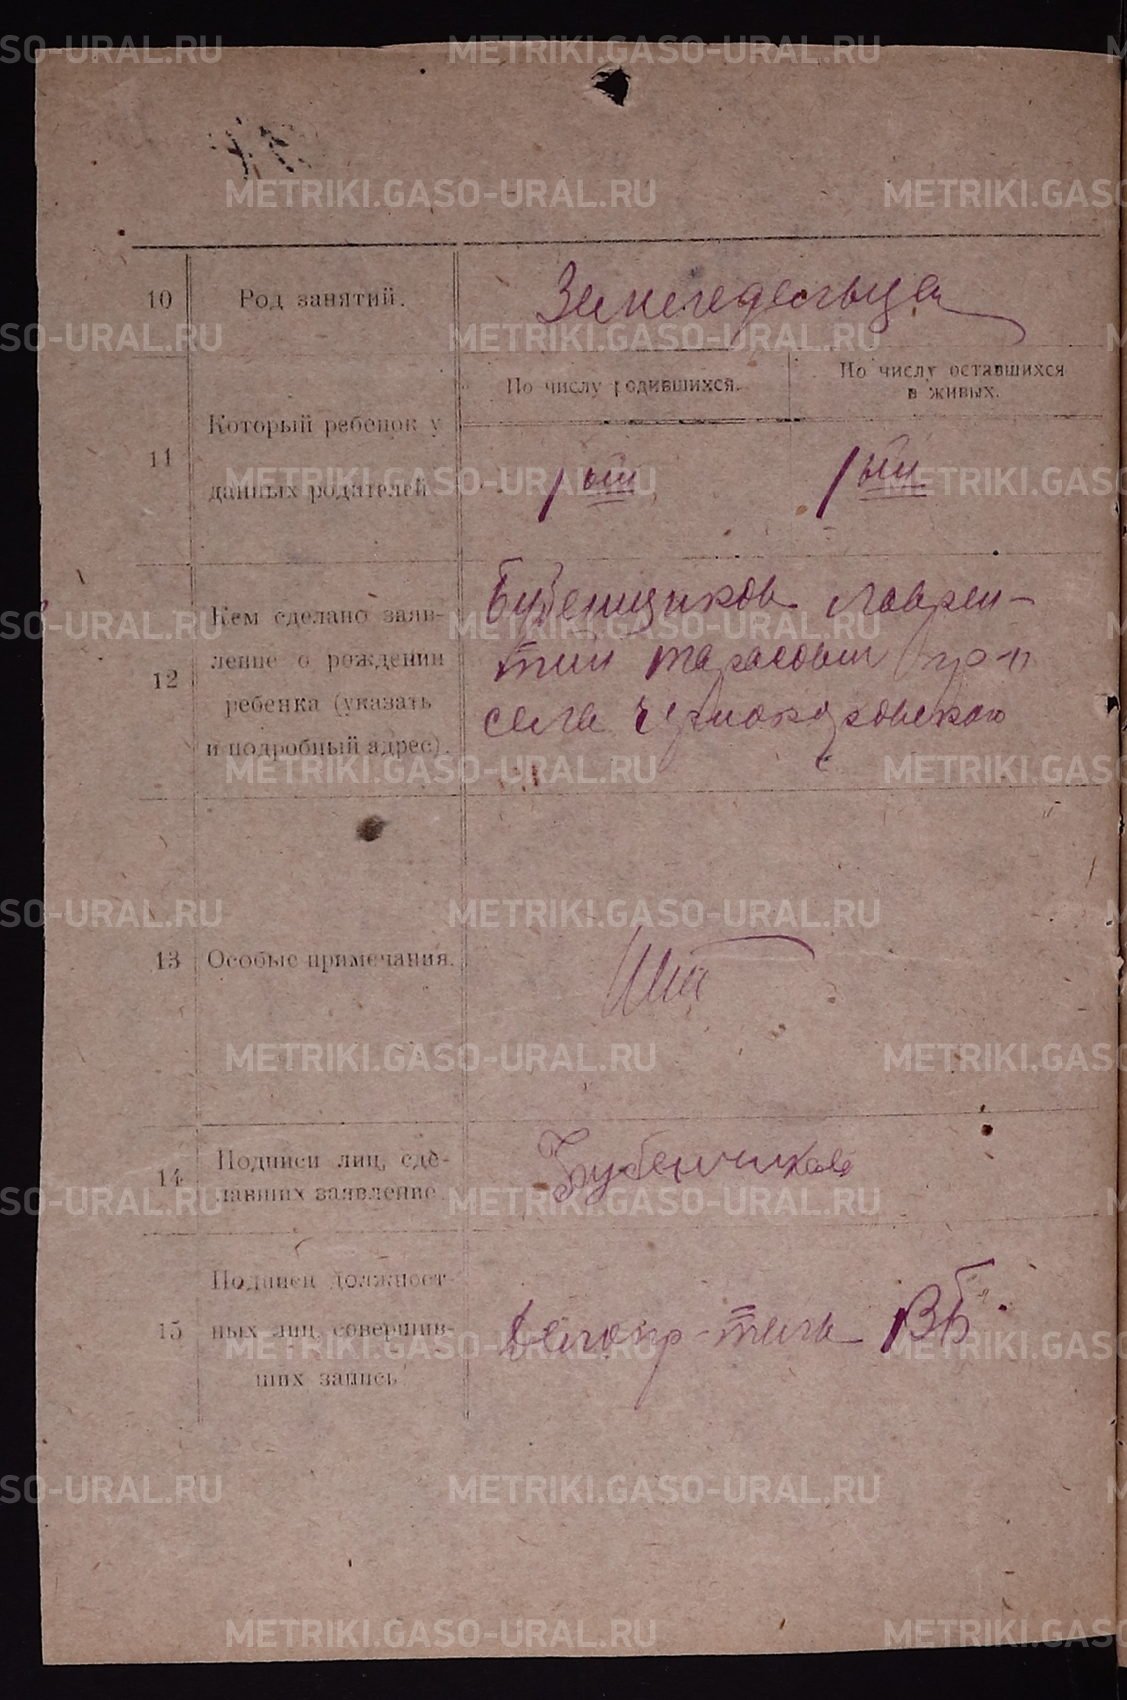 10 Род занятий. Земледельцы
11 Который ребенок у данных родителей
По числу родившихся.
По числу оставшихся
в живых.
1 ый 1 ый
12 Кем сделано заяв-
ление о рождении
ребенка (указать
и подробный адрес).
Бубенщиков Лаврен-
тий Тарасович гр-н
села Чернокоровского
13 Особые примечания. Нет
14 Подписи лиц, сде-
лавших заявление.
Бубенчиков
15 Подписи должност-
ных лиц, совершив-
ших запись.
Делопр-тель
METRIKI.GASO-URAL.RU